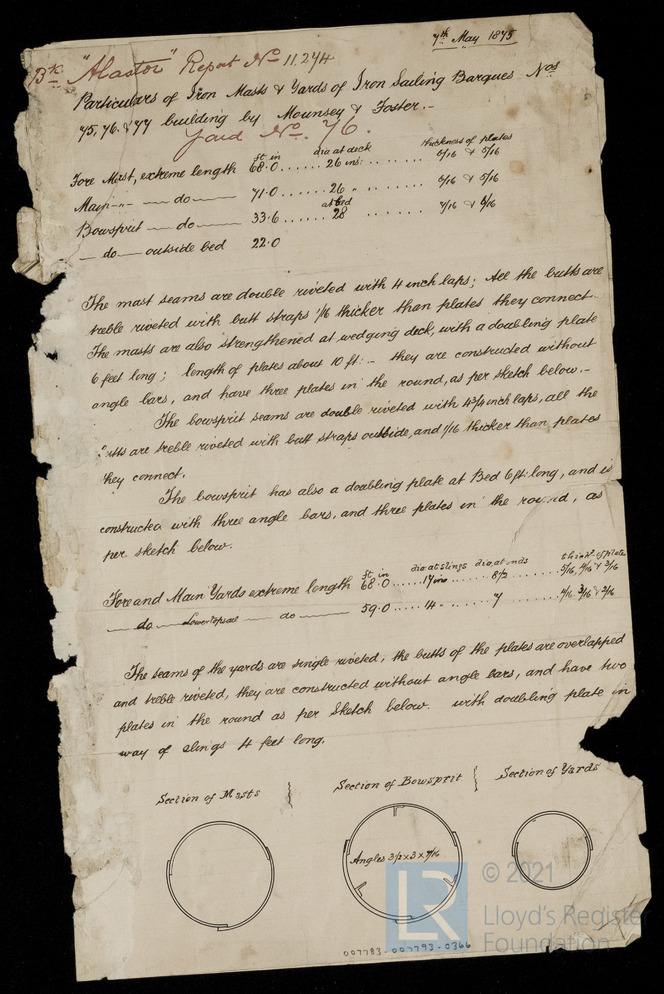 7th May 1875
Bk "Alastor" Report No 11,274
Particulars of Iron Masts & Yards of Iron Sailing Barques Nos
75, 76 & 77 building by Mounsey & Foster.-
Yard No. 76.
ft in dia at deck thickness of plates
Fore Mast, extreme length 68.0 ...... 26 ins: ........ 6/16 & 5/16
Main -"- do 71.0 ...... 26 " ........ 6/16 & 5/16
at bed
Bowsprit do 33.6 ...... 28 ........ 7/16 & 6/16
do outside bed 22.0
The mast seams are double riveted with 4 inch laps; All the butts are
treble riveted with butt straps 1/16 thicker than plates they connect.
The masts are also strengthened at wedging deck, with a doubling plate
6 feet long; length of plates about 10 ft:- they are constructed without
angle bars, and have three plates in the round, as per sketch below.-
The bowsprit seams are double riveted with inch laps, all the
butts are treble riveted with butt straps outside, and 1/16 thicker than plates
they connect.
The bowsprit has also a doubling plate at Bed 6 ft: long, and is
constructed with three angle bars, and three plates in the round, as
per sketch below.
ft in dia at slings dia at ends thick. of plate
Fore and Main Yards extreme length 68.0 ...... 17 ins ...... 8 1/2 ...... 5/16, 4/16 & 3/16
do Lower topsail do 59.0 ...... 14 - ...... 7 ...... 4/16 3/16 & 3/16
The seams of the yards are single riveted, the butts of the plates are overlapped
and treble riveted, they are constructed without angle bars, and have two
plates in the round as per sketch below. with doubling plate in
way of slings 4 feet long.
Section of Masts Section of Bowsprit Section of Yards
Angles 3 1/2 x 3 x 7/16
© 2021
LR Lloyd's Register
Foundation
007783-007793-0366